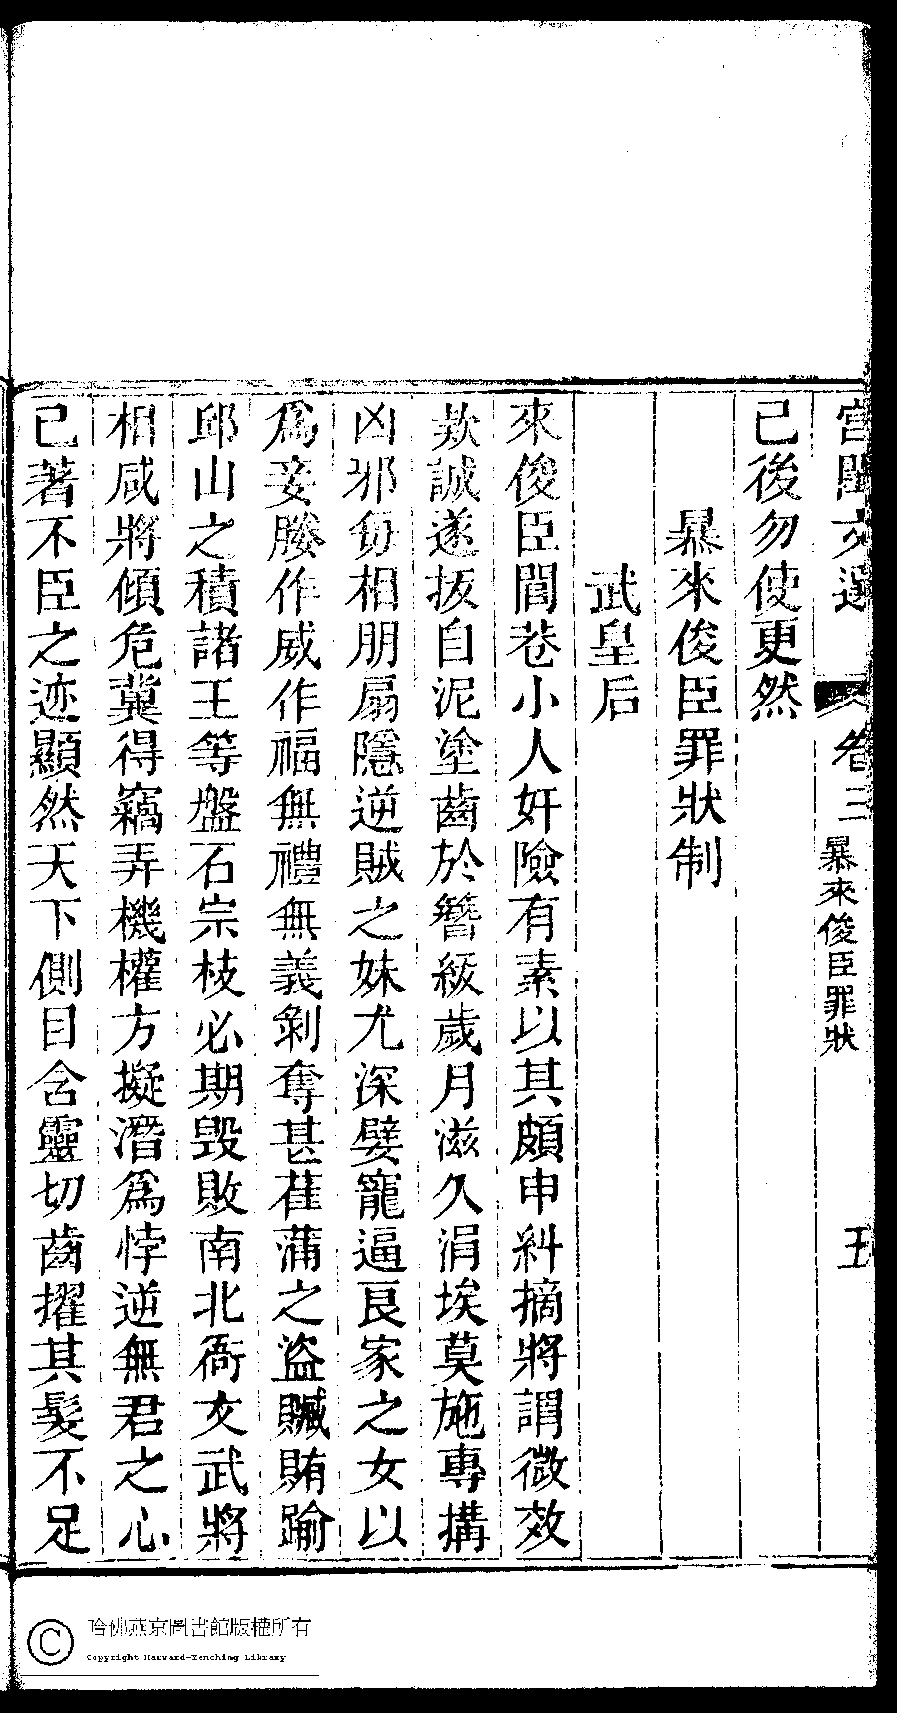 宮閨文選 卷三 暴來俊臣罪狀 五
已後勿使更然
暴來俊臣罪狀制
武皇后
來俊臣閭巷小人奸險有素以其頗申糾摘將謂微效
款誠遂拔自泥塗齒於簪紱歲月滋久涓埃莫施專搆
凶邪每相朋扇隱逆賊之妹尤深嬖寵逼良家之女以
爲妾媵作威作福無禮無義剝奪甚萑蒲之盜贓賄踰
邱山之積諸王等盤石宗枝必期毀敗南北衙文武將
相咸將傾危冀得竊弄機權方擬潛爲悖逆無君之心
已著不臣之迹顯然天下側目含靈切齒擢其髮不足
哈佛燕京圖書館版權所有
Copyright Harvard-Yenching Library